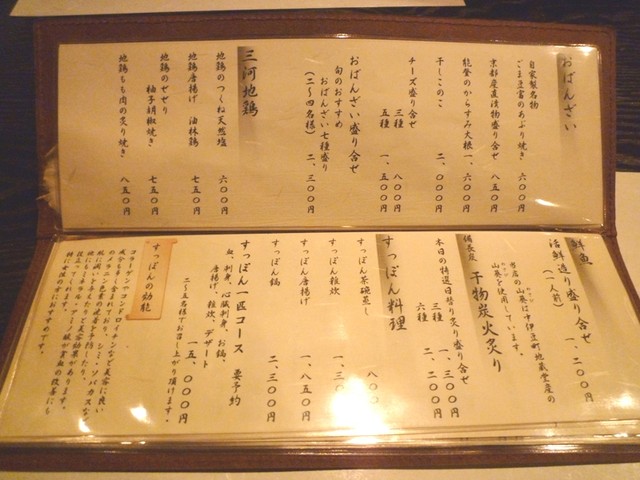 おばんざい
自家製名物
ごま豆富のあぶり焼き 六〇〇円
京都産直漬物盛り合せ 八五〇円
能登のからすみ大根 一、六〇〇円
干しこのこ 二、〇〇〇円
チーズ盛り合せ
三種 八〇〇円
五種 一、五〇〇円
おばんざい盛り合せ
旬のおすすめ
おばんざい七種盛り
(二～四名様) 二、三〇〇円
三河地鶏
地鶏のつくね天然塩 六〇〇円
地鶏唐揚げ 油林鶏 七五〇円
地鶏のせせり
柚子胡椒焼き 七五〇円
地鶏もも肉の炙り焼き 八五〇円
鮮魚
活鮮造り盛り合せ
(一人前) 一、二〇〇円
当店の山葵は中伊豆町地蔵堂産の
山葵を使用しています。
備長炭 干物炭火炙り
本日の特選日替り炙り盛り合せ
三種 一、三〇〇円
六種 二、二〇〇円
すっぽん料理
すっぽん茶碗蒸し 八〇
すっぽん雑炊 一、三〇
すっぽん唐揚げ 一、八五〇円
すっぽん鍋 二、三〇〇円
すっぽん一匹コース 要予約
血、刺身、心臓刺身、お鍋、
唐揚げ、雑炊、デザート
一五、〇〇〇円
二～五名様でお召し上がり頂けます。
すっぽんの効能
コラーゲンやコンドロイチンなど美容に良い
成分も多く含まれており、シミ・ソバカスなど
のメラニン色素の沈着を予防したり、
役立ってミネラル、アミノ酸が貧血の改善にも
特に女性の方におすすめです。